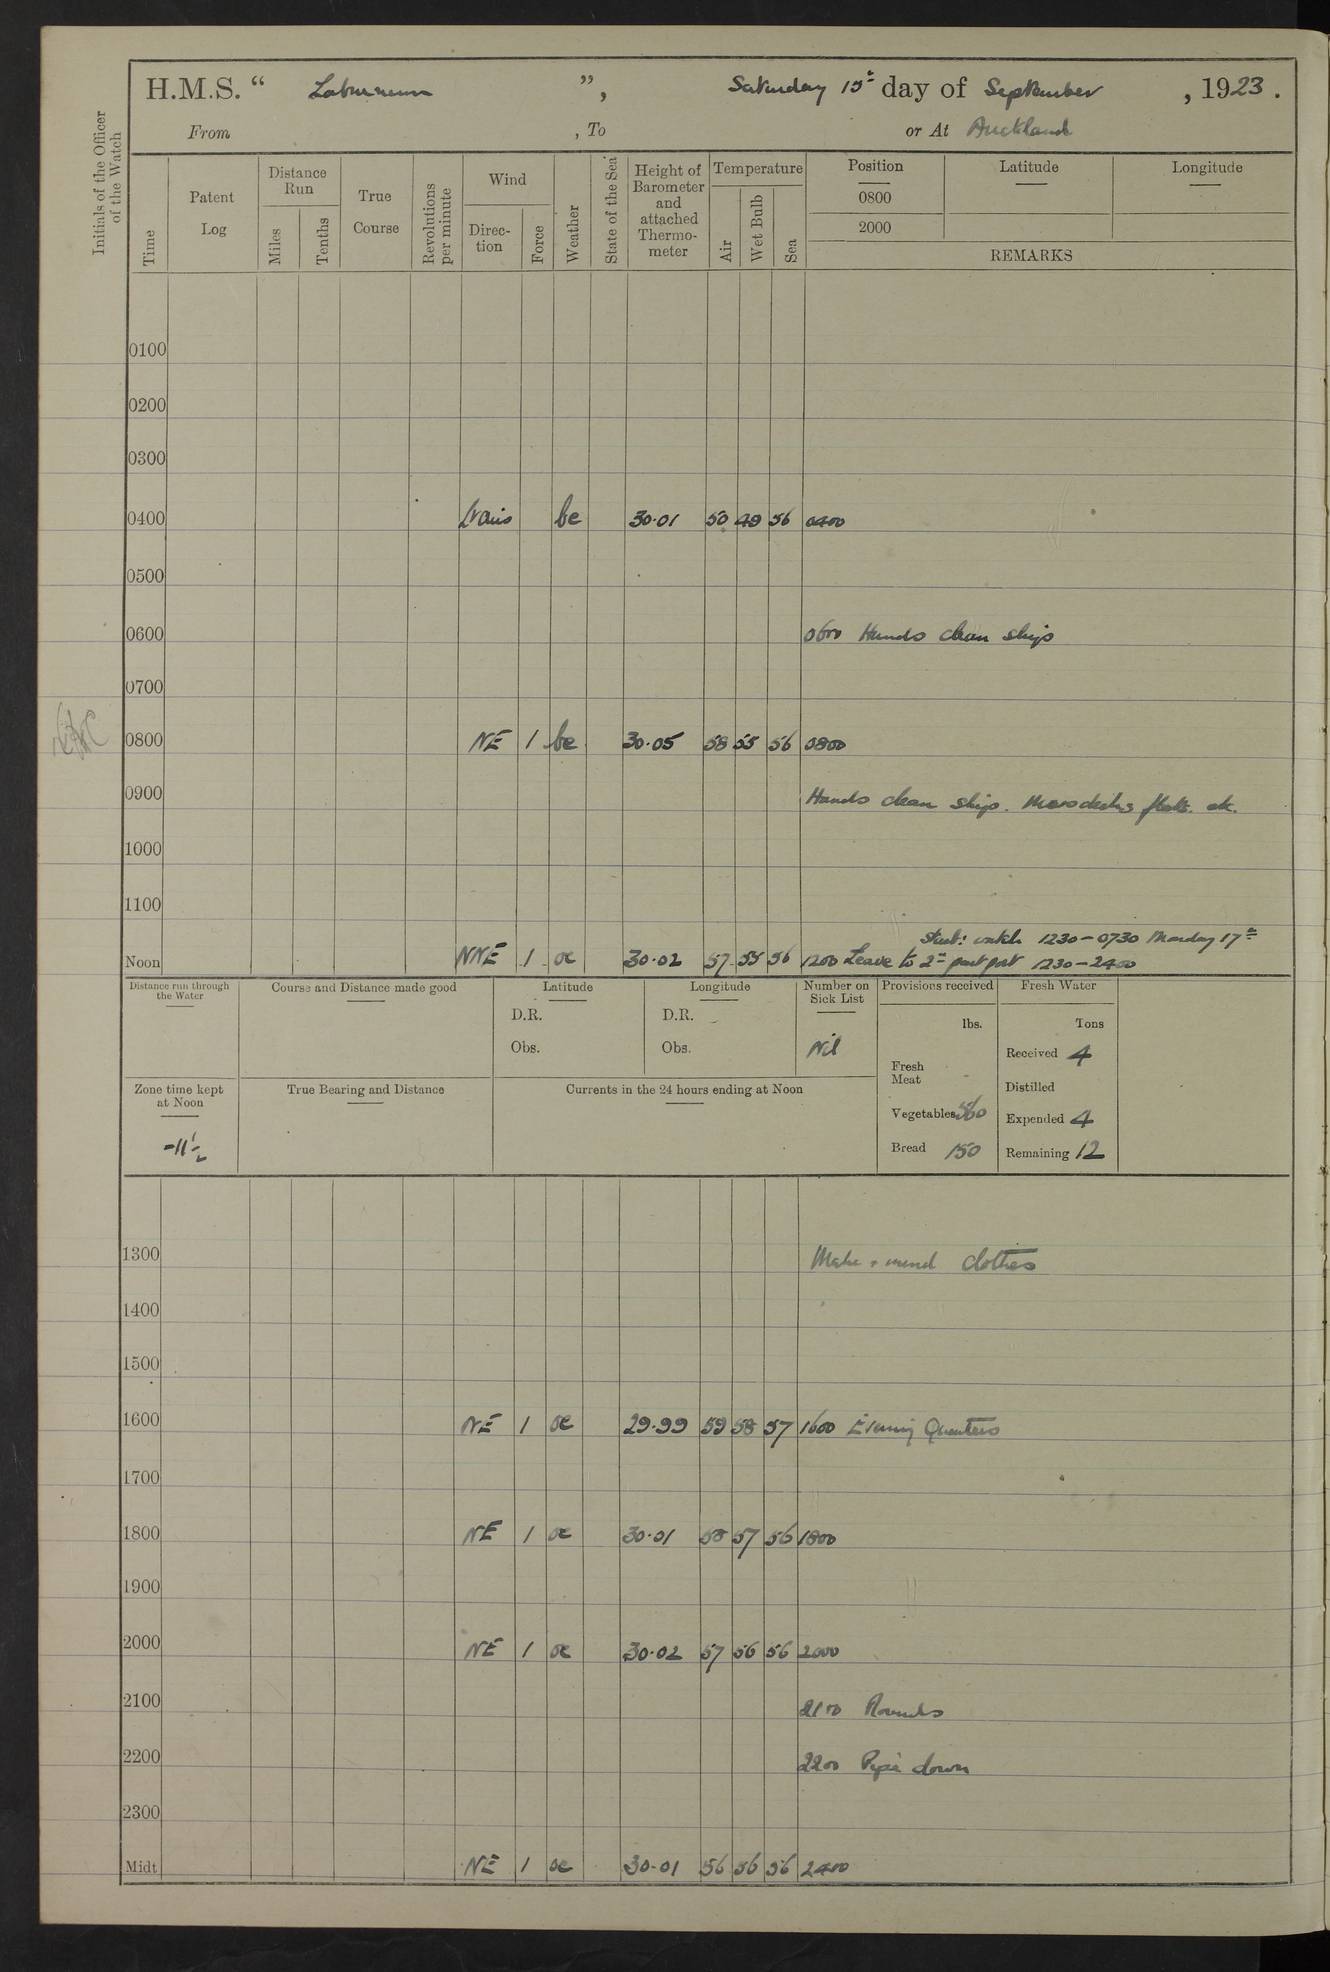 H.M.S. “ Laburnum ”, Saturday 15th day of September, 1923.
From , To or At Auckland
Initials of the Officer of the Watch
Time
Patent Log
Distance Run
Miles
Tenths
True Course
Revolutions per minute
Wind
Direction
Force
Weather
State of the Sea
Height of Barometer and attached Thermometer
Temperature
Air
Wet Bulb
Sea
Position
0800
2000
Latitude
Longitude
REMARKS
0100
0200
0300
0400 bc 30.01 50 49 56 0400
0500
0600 0600 Hands clean ship
0700
0800 NE 1 bc 30.05 58 55 56 0800
0900 Hands clean ship. Messdecks flats. etc.
1000
1100
Starb: watch 1230-0730 Monday 17th
Noon NNE 1 oc 30.02 57 55 56 1200 Leave to 2nd part port 1230-2400
Distance run through the Water
Course and Distance made good
Latitude
D.R.
Obs.
Longitude
D.R.
Obs.
Number on Sick List
Nil
Provisions received
lbs.
Fresh Meat -
Vegetables 560
Bread 150
Fresh Water
Tons
Received 4
Distilled
Expended 4
Remaining 12
Zone time kept at Noon
-11½
True Bearing and Distance
Currents in the 24 hours ending at Noon
1300 Make + mend clothes
1400
1500
1600 NE 1 oc 29.99 59 58 57 1600 Evening Quarters
1700
1800 NE 1 oc 30.01 58 57 56 1800
1900
2000 NE 1 oc 30.02 57 56 56 2000
2100 2100 Rounds
2200 2200 Pipe down
2300
Midt NE 1 oc 30.01 56 56 56 2400